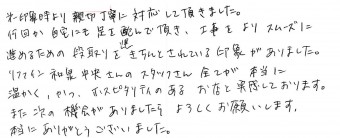 第一印象時より親切丁寧に対応して頂きました。
何回か自宅にも足を運んで頂き、工事をよりスムーズに
進めるための段取りをきちんとされている印象がありました。
リファイン和泉中央さんのスタッフさん全てが本当に
温かく,かつ、ホスピタリティのあるお店と実感しております。
また次の機会がありましたらよろしくお願いします。
本当にありがとうございました。